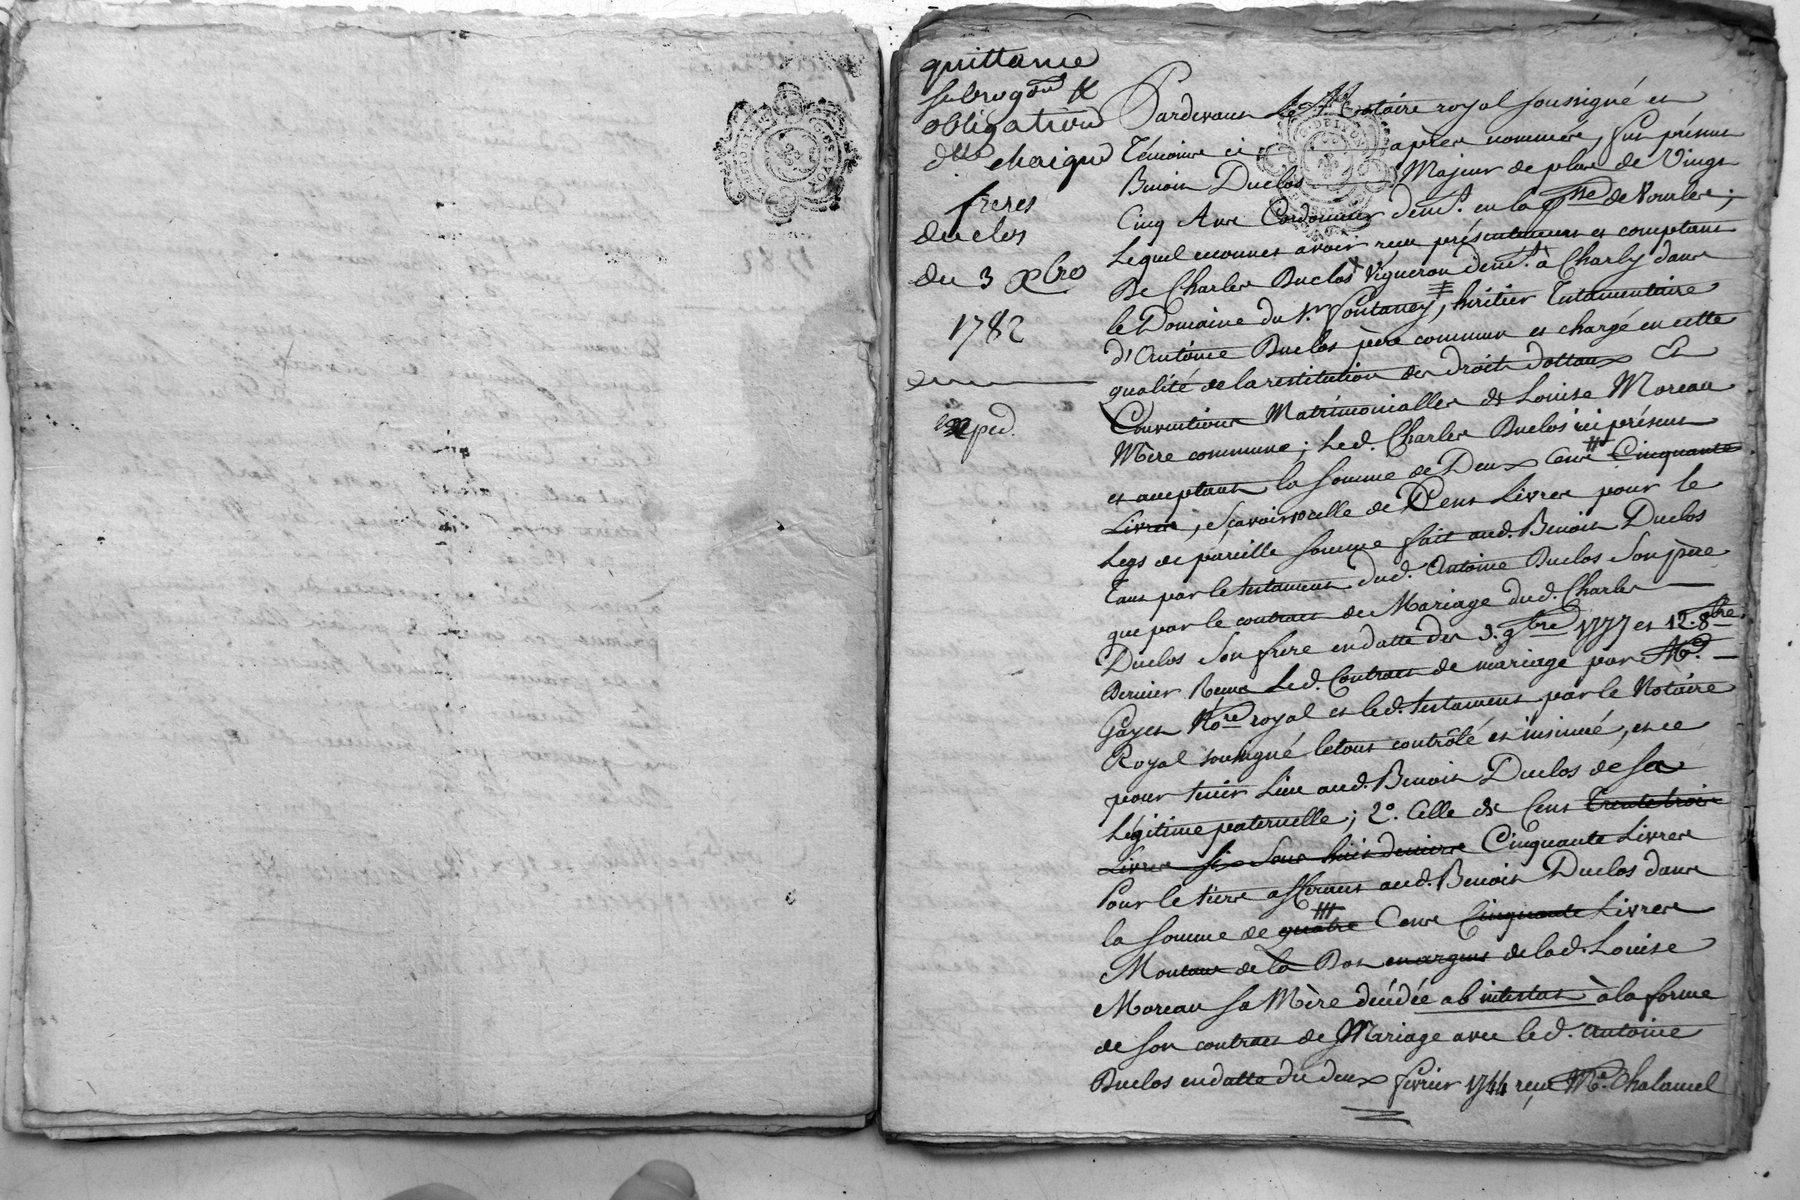 quittance
subrog.on &
obligation
d'elle chaigne
freres
duclos
du 3 xbre
1782
exped.
Pardevant Le N.re Notaire royal soussigné et
Témoins ci après nommés, fut présent
Benoit Duclos Majeur de plus de Vingt
Cinq Ans Cordonnier dem.t en la p.sse de Vourles;
Lequel reconnut avoir reçu présentement et comptant
De Charles Duclos Vigneron dem.t à Charly dans
le Domaine du s.r Fontaney, héritier Testamentaire
d'Antoine Duclos père commun et chargé en cette
qualité de la restitution des droits dottaux Et
Conventions Matrimonialles de Louise Moreau
Mère commune; Led. Charles Duclos ici présent
et acceptant la somme de Deux Cens Cinquante
Livres, sçavoir celle de Cent Livres pour le
Legs de pareille somme fait aud. Benoit Duclos
Tant par le testament dud. Antoine Duclos son père
que par le contract de Mariage dud. Charles
Duclos son frere en datte des 3. 9bre 1777 et 12. 8bre
Dernier Reçus Led. Contract de mariage par M.e
Gayet N.re royal et led. testament par le Notaire
Royal soussigné le tout contrôlé et insinué, et ce
pour tenir Lieu aud. Benoit Duclos de sa
Légitime paternelle; 2.o Celle de Cent Trente trois
Livres six sous huit deniers Cinquante Livres
Pour le tiers afférant aud. Benoit Duclos dans
la somme de quatre Cens Cinquante Livres
Montant de la Dot en argent de lad. Louise
Moreau sa Mère décédée ab intestat à la forme
de son contract de Mariage avec led. Antoine
Duclos en datte du deux fevrier 1744 reçu M.e Chalamel